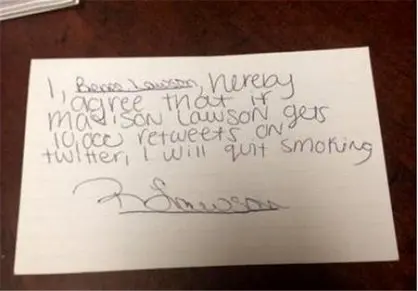 I, Lawson, hereby
agree that if
Madison Lawson gets
10,000 retweets on
twitter, I will quit smoking